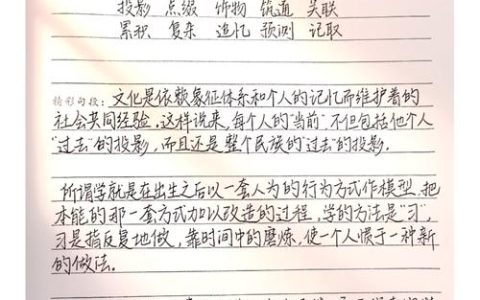 投影 点缀 博物 筑通 关联
累积 复杂 追忆 预测 记取
精彩句段：文化是依赖象征体系和个人的记忆而维护着的
社会共同经验。这样说来，每个人的"当前"，不但包括他个人
"过去"的投影，而且还是整个民族的"过去"的投影．
所谓学就是在出生之后以一套人为的行为方式作模型，把
本能的那一套方式加以改造的过程，学的方法是"习"，
习是指反复地做，靠时间中的磨炼，使一个人惯于一种新
的做法。